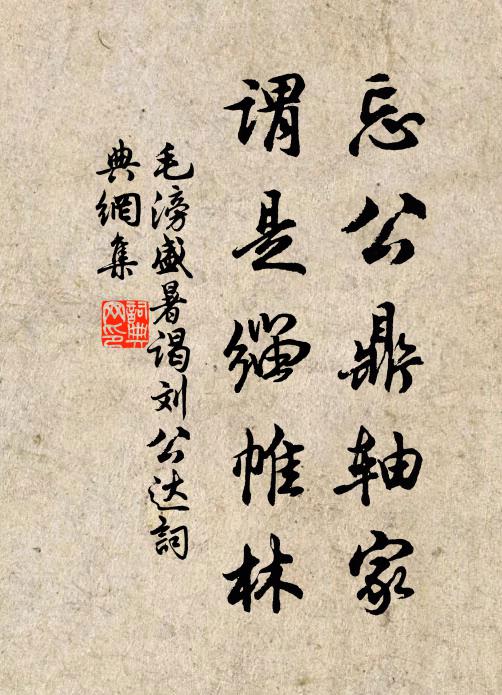 忘公鼎轴家
谓是缁帷林
毛滂盛暑谒刘公达詞
典網集
詞典
网印